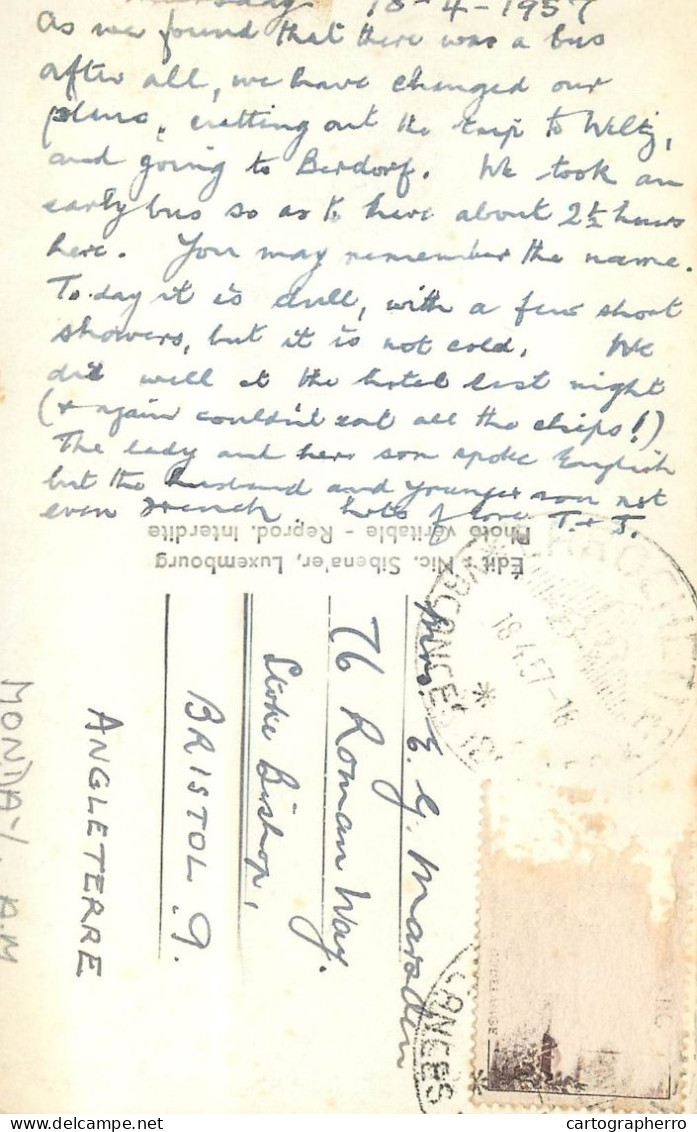 Thursday 18-4-1957
As we found that there was a bus
after all, we have changed our
plans, cutting out the trip to Wiltz,
and going to Berdorf. We took an
early bus so as to have about 2½ hours
here. You may remember the name.
To-day it is dull, with a few short
showers, but it is not cold. We
did well at the hotel last night
(& again couldn't eat all the chips!)
The lady and her son spoke English
but the husband and younger son not
even French. Lots of love T. & J.
Photo véritable - Reprod. Interdite
Edit : Nic. Sibenaler, Luxembourg
Mrs. E. G. Marsden
76 Roman Way,
Stoke Bishop,
BRISTOL. 9.
ANGLETERRE
MONDAY. A.M
LAROCHETTE
VACANCES
18.4.57-16
VACANCES
cartographerro
delcampe.net